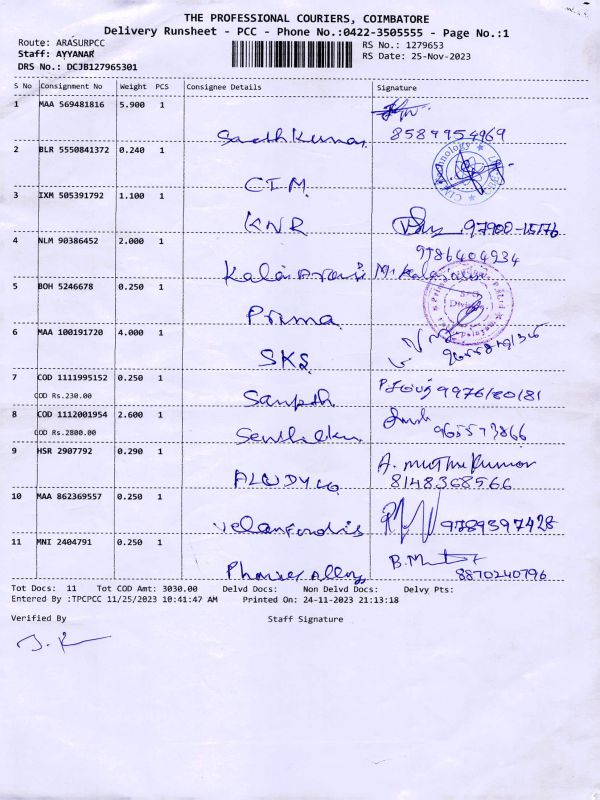 THE PROFESSIONAL COURIERS, COIMBATORE
Delivery Runsheet - PCC - Phone No.:0422-3505555 - Page No.:1
Route: ARASURPCC RS No.: 1279653
Staff: AYYANAR RS Date: 25-Nov-2023
DRS No.: DCJB127965301
S No Consignment No Weight PCS Consignee Details Signature
1 MAA 569481816 5.900 1
8589954969
2 BLR 5550841372 0.240 1
CIM
3 IXM 505391792 1.100 1
KNR 97900-15176
4 NLM 90386452 2.000 1
9786404934
5 BOH 5246678 0.250 1
Prima
6 MAA 100191720 4.000 1
SKS
7 COD 1111995152 0.250 1
COD Rs.230.00
Sampth 9976180181
8 COD 1112001954 2.600 1
COD Rs.2800.00
965573866
9 HSR 2907792 0.290 1
A. muthukumar
8148368566
10 MAA 862369557 0.250 1
9789397428
11 MNI 2404791 0.250 1
Alloy
8870240796
Tot Docs: 11 Tot COD Amt: 3030.00 Delvd Docs: Non Delvd Docs: Delvy Pts:
Entered By :TPCPCC 11/25/2023 10:41:47 AM Printed On: 24-11-2023 21:13:18
Verified By Staff Signature